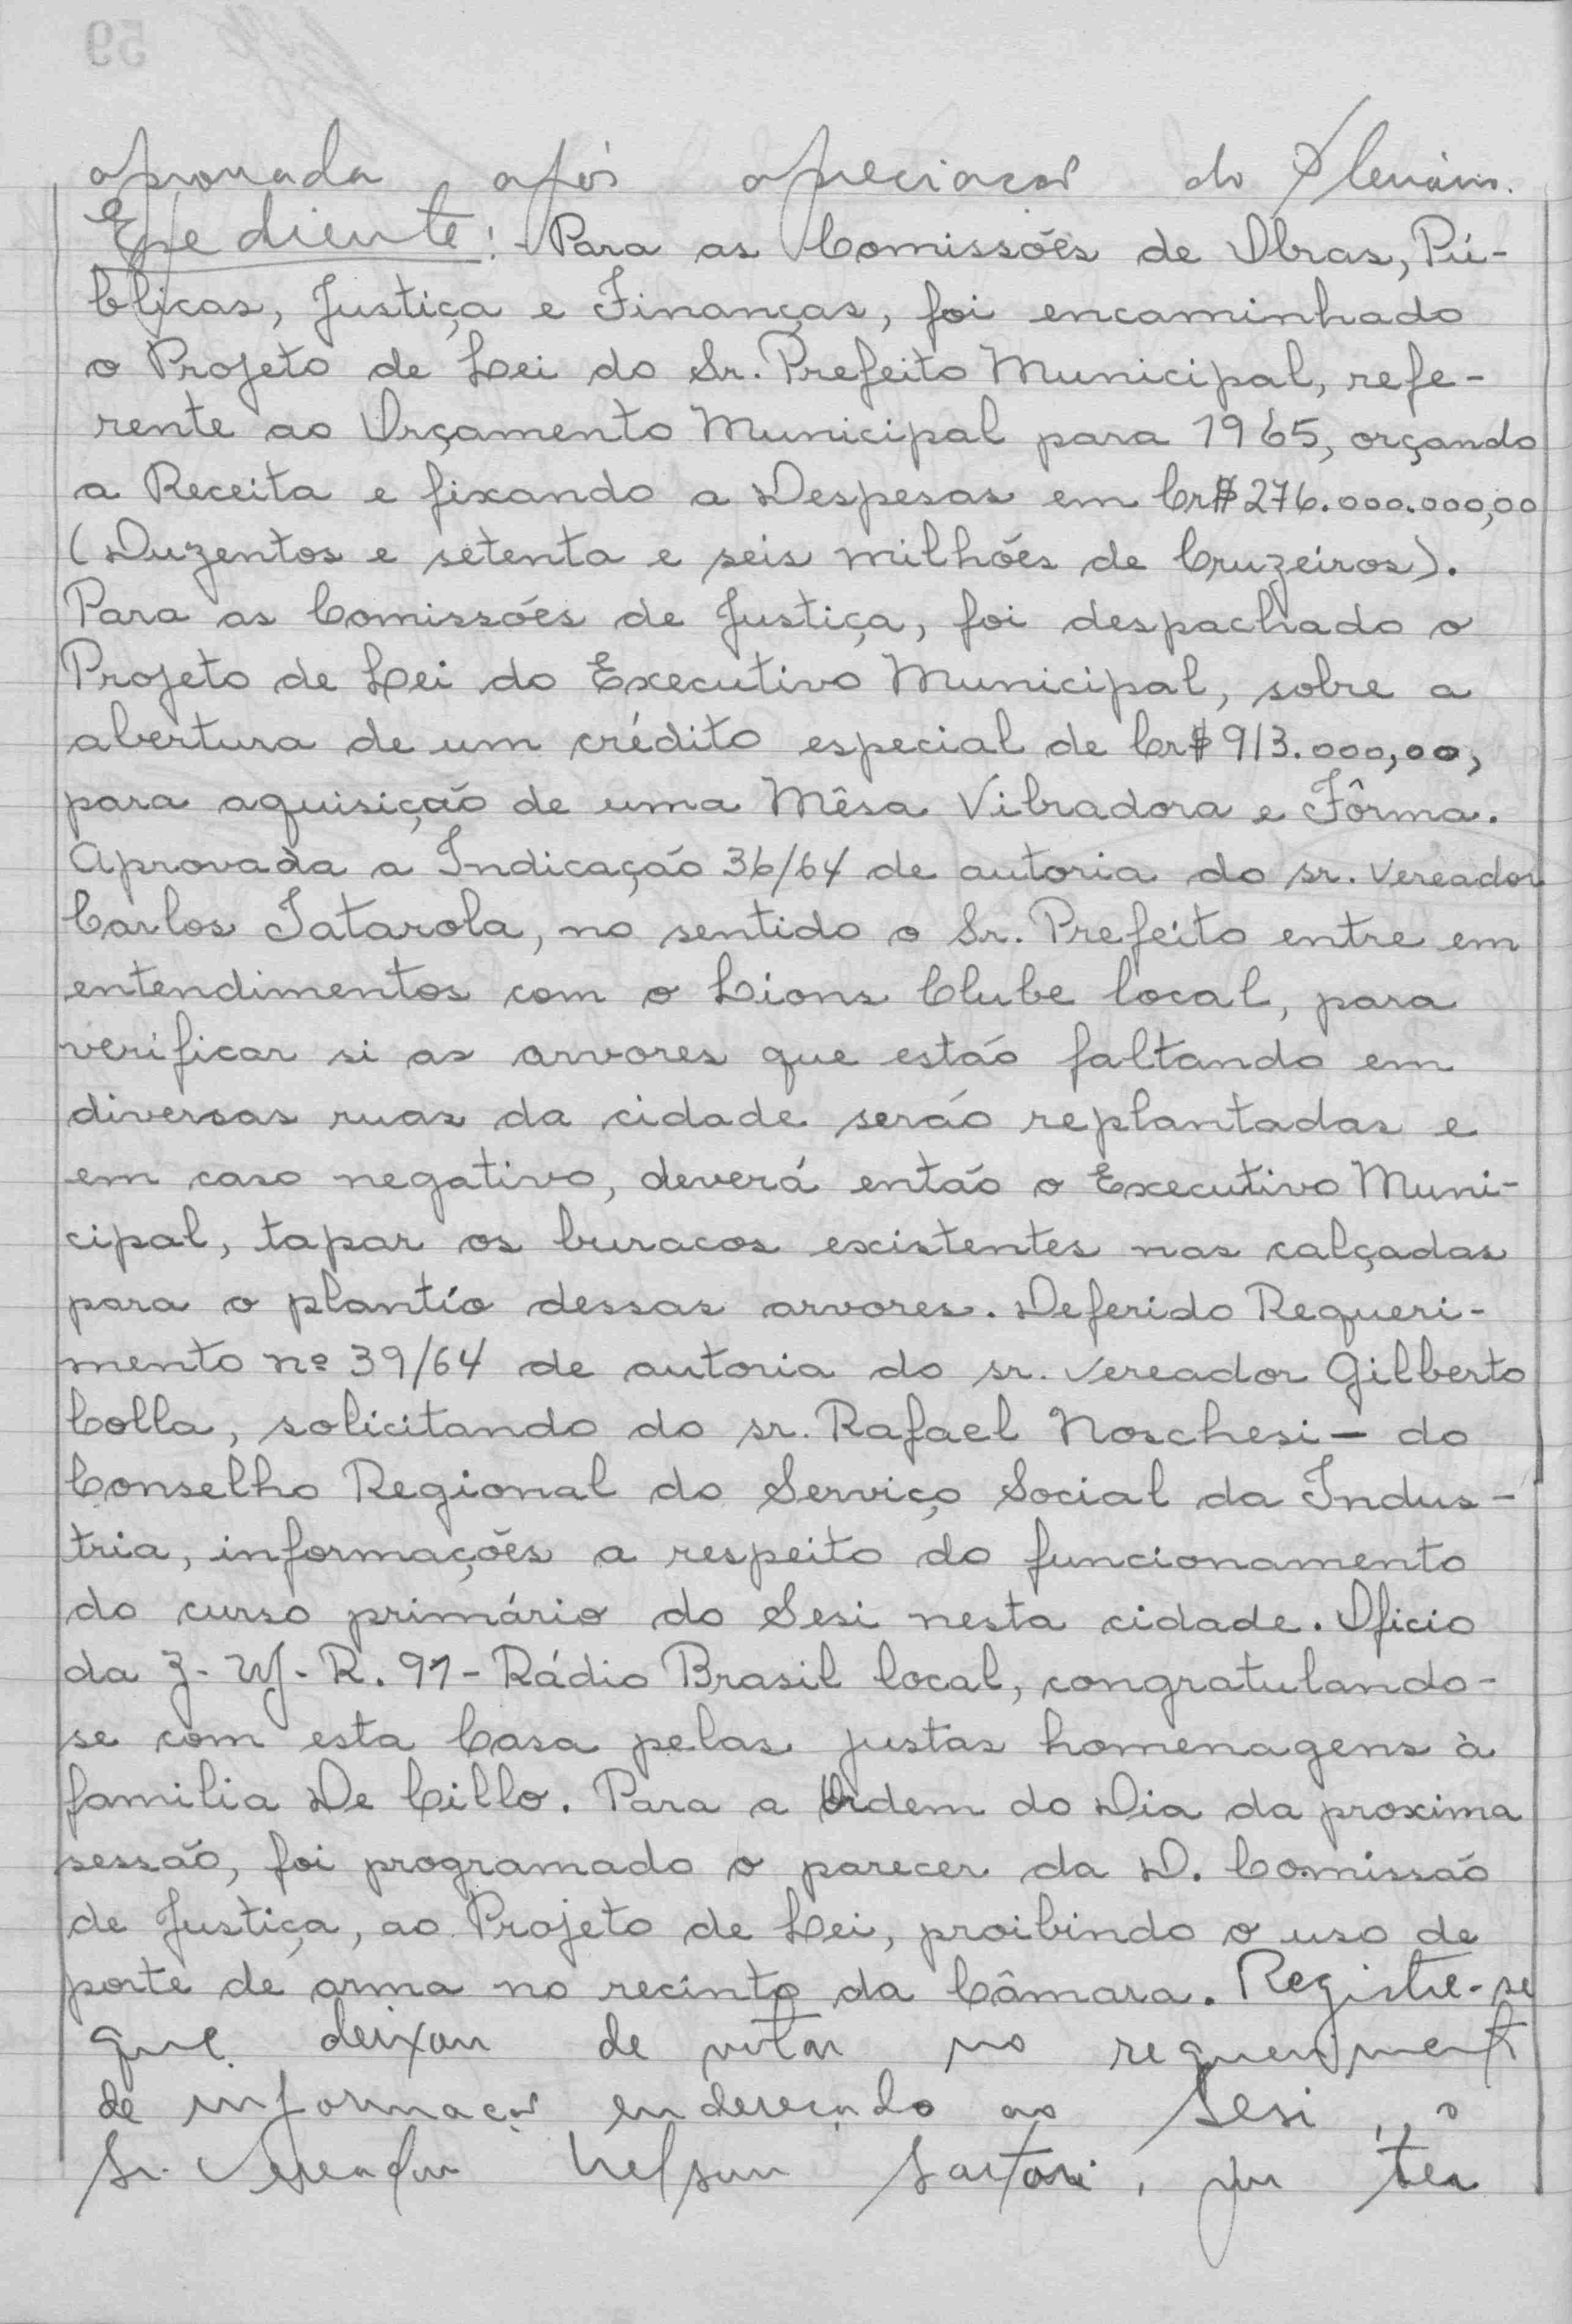 aprovada após apreciação do Plenário.
Expediente: - Para as Comissões de Obras, Pú-
blicas, Justiça e Finanças, foi encaminhado
o Projeto de Lei do Sr. Prefeito Municipal, refe-
rente ao Orçamento Municipal para 1965, orçando
a Receita e fixando a Despesas em Cr$ 276.000.000,00
(Duzentos e setenta e seis milhões de Cruzeiros).
Para as Comissões de Justiça, foi despachado o
Projeto de Lei do Executivo Municipal, sobre a
abertura de um crédito especial de Cr$ 913.000,00,
para aquisição de uma Mêsa Vibradora e Fôrma.
Aprovada a Indicação 36/64 de autoria do sr. Vereador
Carlos Tatarola, no sentido o Sr. Prefeito entre em
entendimentos com o Lions Clube local, para
verificar si as arvores que estão faltando em
diversas ruas da cidade serão replantadas e
em caso negativo, deverá então o Executivo Muni-
cipal, tapar os buracos existentes nas calçadas
para o plantío dessas arvores. Deferido Requeri-
mento nº 39/64 de autoria do sr. Vereador Gilberto
Colla, solicitando do sr. Rafael Noschesi - do
Conselho Regional do Serviço Social da Indus-
tria, informações a respeito do funcionamento
do curso primário do Sesi nesta cidade. Oficio
da Z-Y-R. 97 - Rádio Brasil local, congratulando-
se com esta Casa pelas justas homenagens à
familia De Cillo. Para a Ordem do Dia da proxima
sessão, foi programado o parecer da D. Comissão
de Justiça, ao Projeto de Lei, proibindo o uso de
porte de arma no recínto da Câmara. Registre-se
que deixou de votar no requeriment
de informação endereçado ao Sesi, o
Sr. Vereador Nelson Sartori, por ter